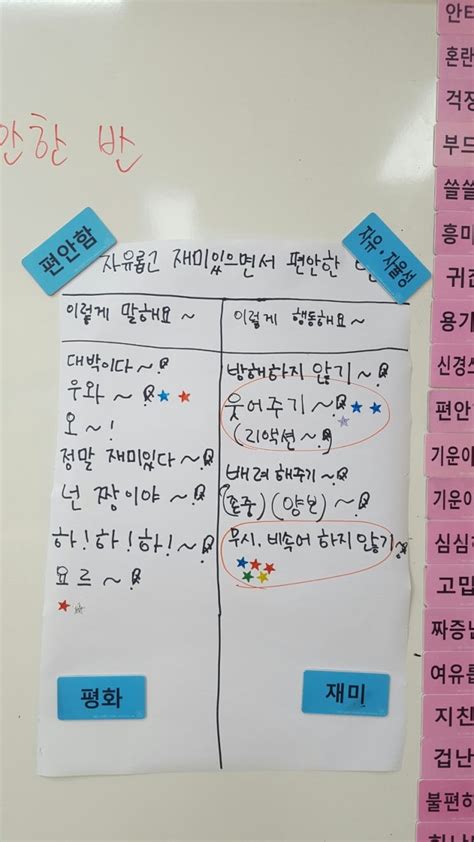 안한 반
편안함
자유·자율성
자유롭고 재미있으면서 편안한
이렇게 말해요~
대박이다~
우와~
오~!
정말 재미있다~
넌 짱이야~
하!하!하!~
요르~
이렇게 행동해요~
방해하지 않기~
웃어주기~
(리액션~)
배려해주기~
(존중)(양보)~
무시, 비속어 하지 않기~
평화
재미
안타
혼란
걱정
부드
쓸쓸
흥미
귀찬
용기
신경쓰
편안
기운이
기운이
심심
고맙
짜증
여유롭
지친
겁난
불편하